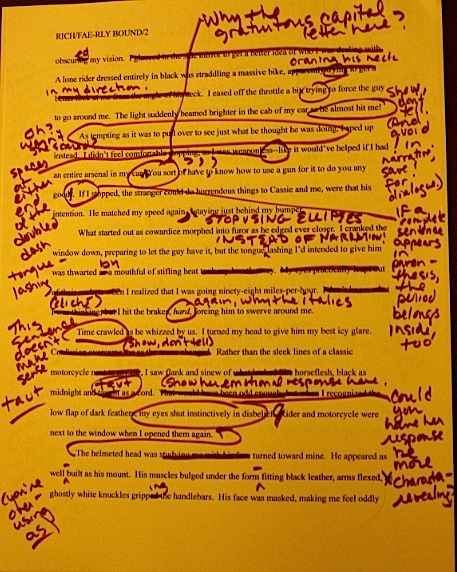 Why the
gratuitous capital
letter here?
RICH/FAE-RLY BOUND/2
obscured my vision. I glanced in the side mirror to get a better idea of who I was dealing with
craning his neck
A lone rider dressed entirely in black was straddling a massive bike, apparently trying to get a
in my direction.
better look at me from the angle of his neck. I eased off the throttle a bit, trying to force the guy
to go around me. The light suddenly beamed brighter in the cab of my car as he almost hit me!
show,
don't
tell.
(and
avoid
!
in
narrative
save!
for
dialogue.)
As tempting as it was to pull over to see just what he thought he was doing, I sped up
oh?
instead. I didn't feel comfortable stopping, as I was weaponless--like it would've helped if I had
spaces
at
either
end
of the
doubled
dash
an entire arsenal in my car. You sort of have to know how to use a gun for it to do you any
good. If I stopped, the stranger could do horrendous things to Cassie and me, were that his
intention. He matched my speed again, staying just behind my bumper.
STOP USING ELLIPSES
INSTEAD OF NARRATION!
If a
complete
sentence
appears
in
paren-
thesis,
the
period
belongs
inside,
too
What started out as cowardice morphed into furor as he edged ever closer. I cranked the
window down, preparing to let the guy have it, but the tongue lashing I'd intended to give him
tongue-
lashing
by
was thwarted a mouthful of stifling heat
when I realized that I was going ninety-eight miles-per-hour.
(cliché)
again, why the italics
I hit the brakes, hard, forcing him to swerve around me.
This
sentence
doesn't
make
sense
Time crawled as he whizzed by us. I turned my head to give him my best icy glare.
(show, don't tell)
Rather than the sleek lines of a classic
motorcycle I saw flank and sinew of horseflesh, black as
taut
taut
show her emotional response here.
midnight and as a cord. That would have been odd enough I recognized the
low flap of dark feathers, my eyes shut instinctively in disbelief. Rider and motorcycle were
next to the window when I opened them again.
Could
you
have her
response
be
more
character-
revealing?
The helmeted head was turned toward mine. He appeared as
well-built as his mount. His muscles bulged under the form-fitting black leather, arms flexed,
you're
over-
using
as
ing
ghostly white knuckles gripped the handlebars. His face was masked, making me feel oddly